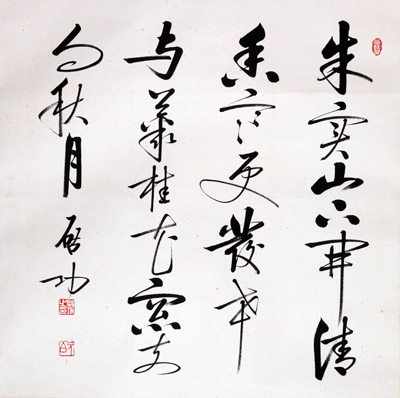 朱实山下開清
香寒更發幸
与叢桂花窗前
向秋月
啓功